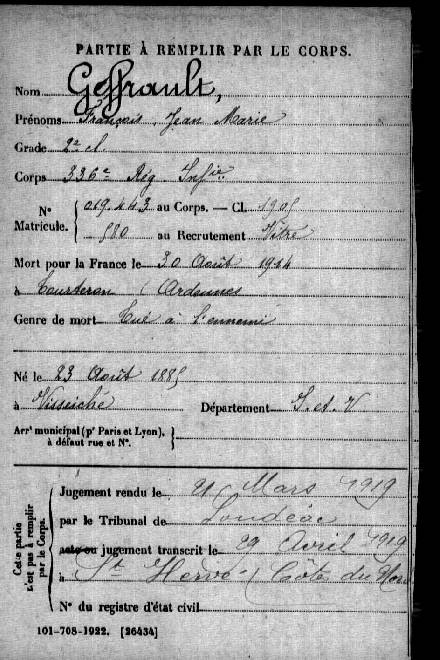 PARTIE À REMPLIR PAR LE CORPS.
Nom Geffrault,
Prénoms François, Jean Marie
Grade 2e cl
Corps 336e Rég. Infie
N° Matricule. { 019.443 au Corps. — Cl. 1905
580 au Recrutement Vitré
Mort pour la France le 30 Août 1914
à (Ardennes
Genre de mort Tué à l'ennemi
Né le 23 Août 1885
à Visseiche Département I. et. V
Arrt municipal (pr Paris et Lyon), à défaut rue et N°. }
Cette partie n'est pas à remplir par le Corps.
Jugement rendu le 21 Mars 1919
par le Tribunal de Loudéac
acte ou jugement transcrit le 29 Avril 1919
à St Hervé (Côte du Nord
N° du registre d'état civil
101-708-1922. [26434]